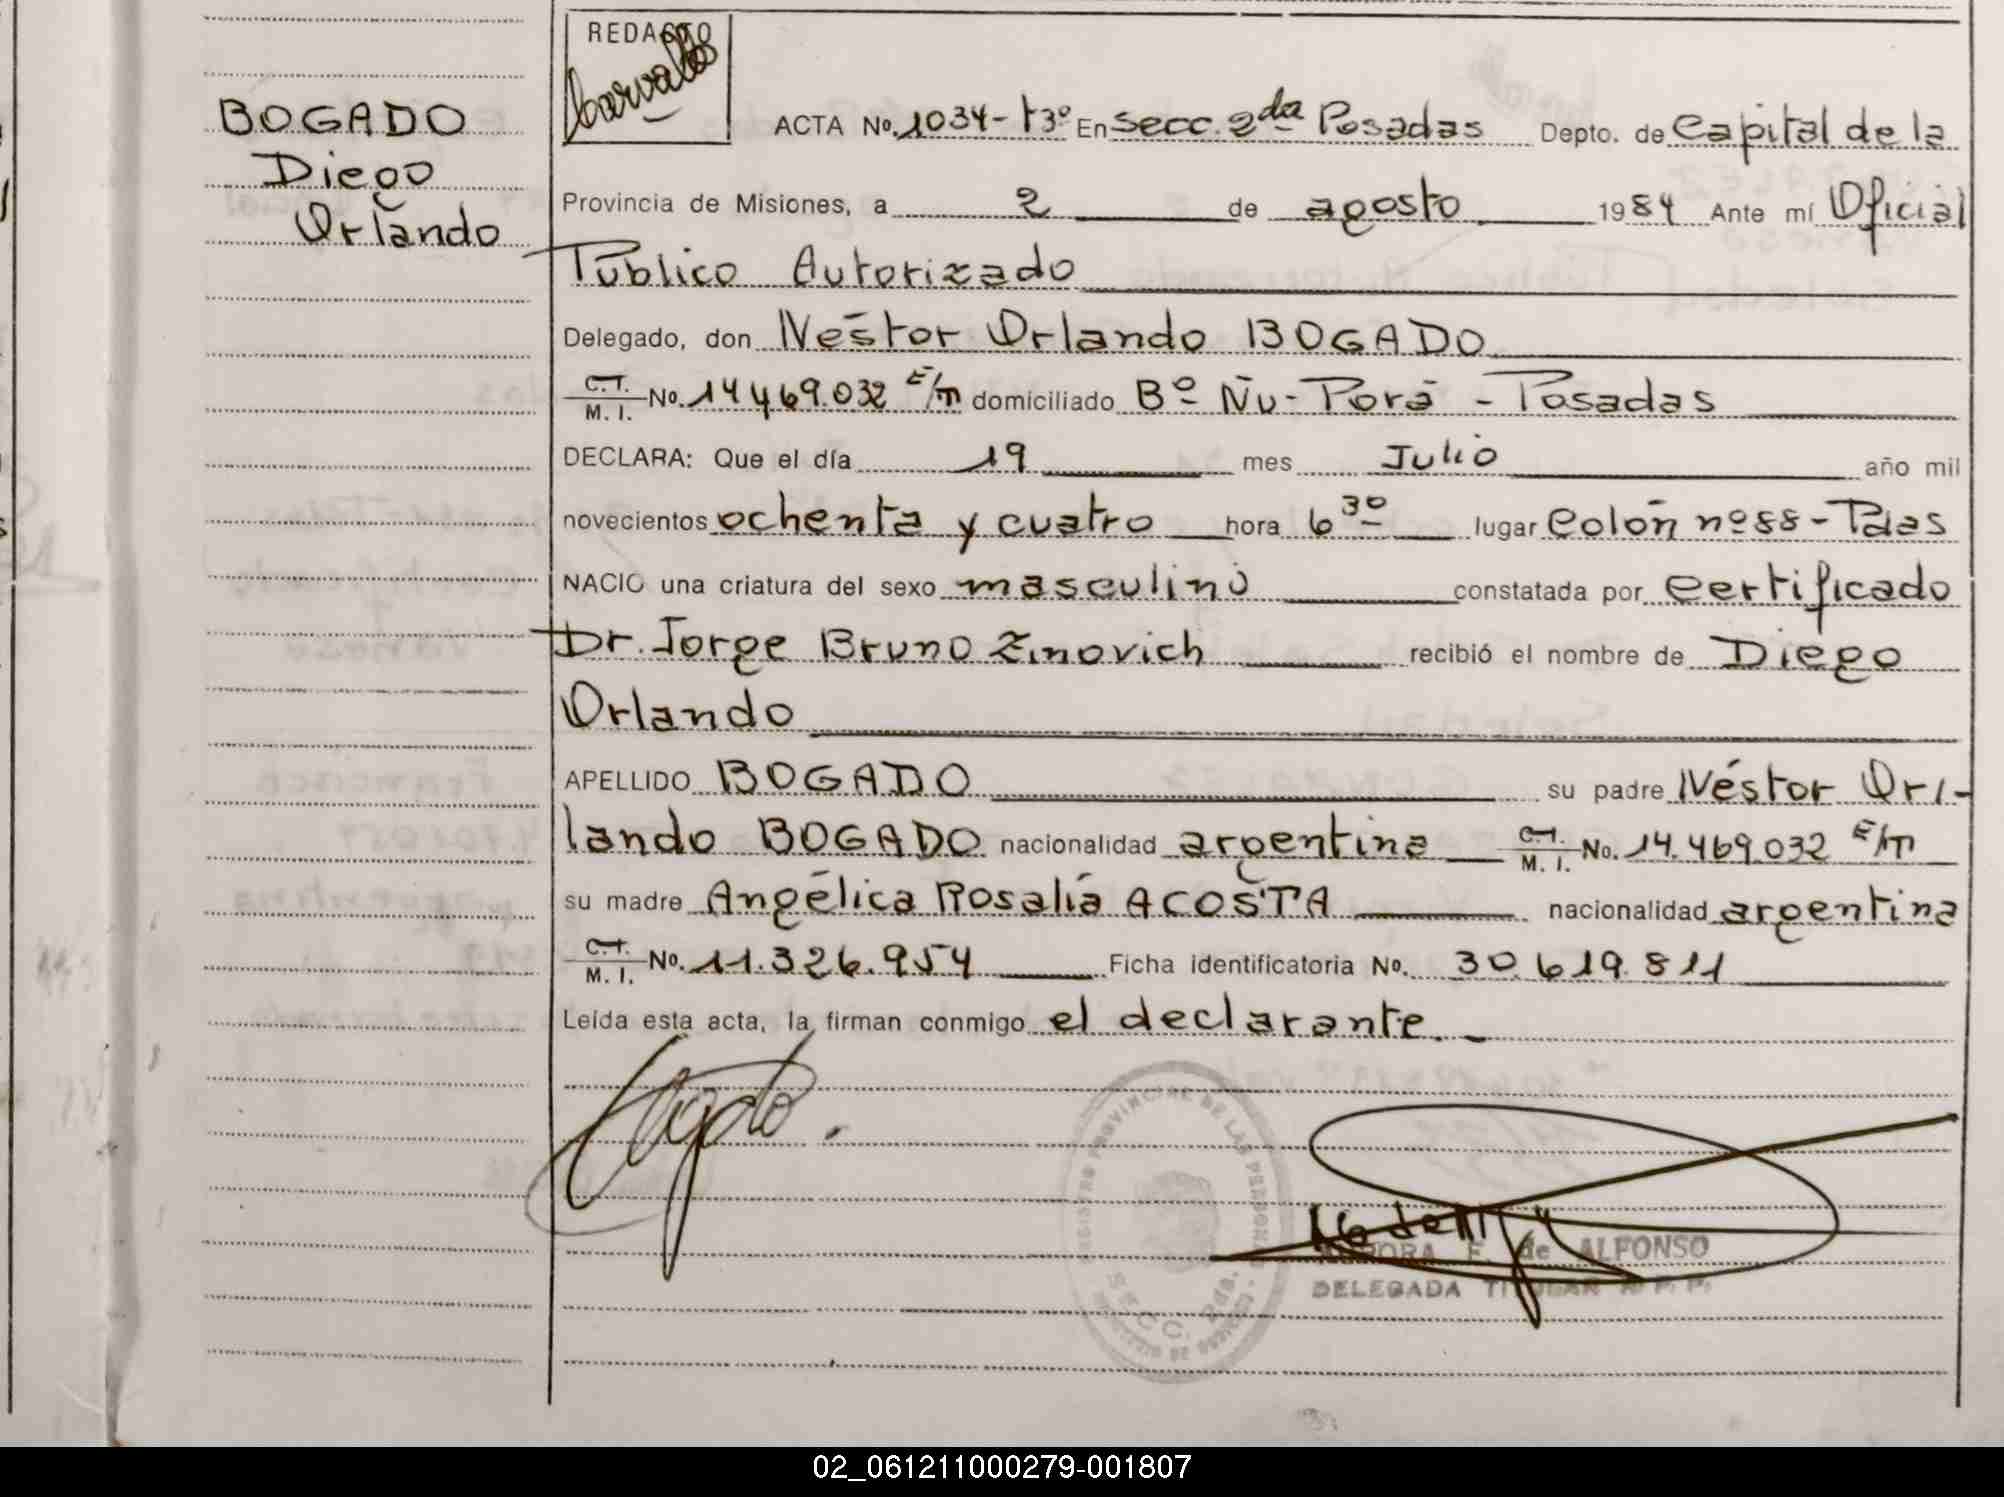 REDACTO
Carvallo
BOGADO
Diego
Orlando
ACTA No. 1034-t3º En Secc. 2da Posadas Depto. de Capital de la
Provincia de Misiones, a 2 de agosto 1984 Ante mí Oficial
Público Autorizado
Delegado, don Néstor Orlando BOGADO
C.I. M. I. No. 14.469.032 E/m domiciliado Bº Ñu-Porá - Posadas
DECLARA: Que el día 19 mes Julio año mil
novecientos ochenta y cuatro hora 6 30 lugar Colón nº 88 - Pdas
NACIO una criatura del sexo masculino constatada por Certificado
Dr. Jorge Bruno Zinovich recibió el nombre de Diego
Orlando
APELLIDO BOGADO su padre Néstor Or-
lando BOGADO nacionalidad argentina C.I. M. I. No. 14.469.032 E/m
su madre Angélica Rosalía ACOSTA nacionalidad argentina
C.I. M. I. No. 11.326.954 Ficha identificatoria No. 30.619.811
Leída esta acta, la firman conmigo el declarante.-
REGISTRO PROVINCIAL DE LAS PERSONAS
SECC. 2da.
F. de ALFONSO
DELEGADA TITULAR R. P. P.
02_061211000279-001807